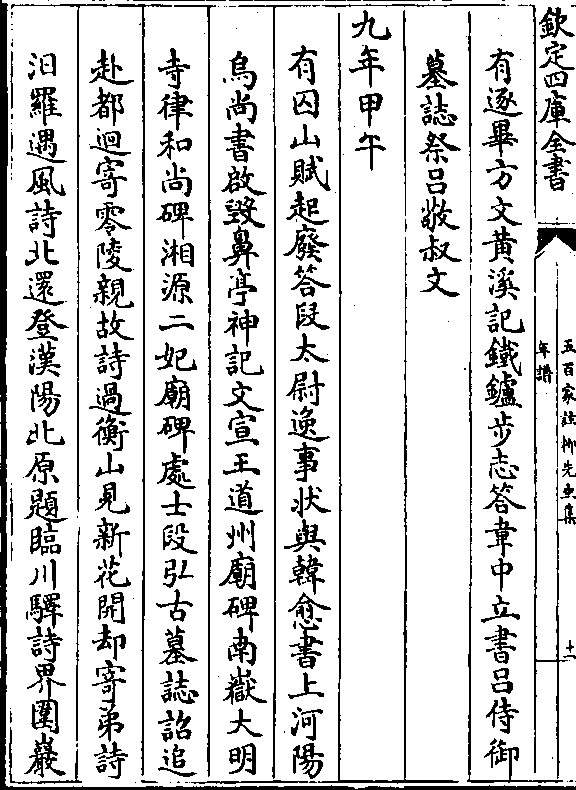 欽定四庫全書
五百家註柳先生集
年譜
十一
有逐畢方文黄溪記鐵鑪步志答韋中立書吕侍御
墓誌祭吕敬叔文
九年甲午
有囚山賦起廢答段太尉逸事狀與韓愈書上河陽
烏尚書啟毀鼻亭神記文宣王道州廟碑南嶽大明
寺律和尚碑湘源二妃廟碑處士段弘古墓誌詔追
赴都迴寄零陵親故詩過衡山見新花開却寄弟詩
汨羅遇風詩北還登漢陽北原題臨川驛詩界圍巖